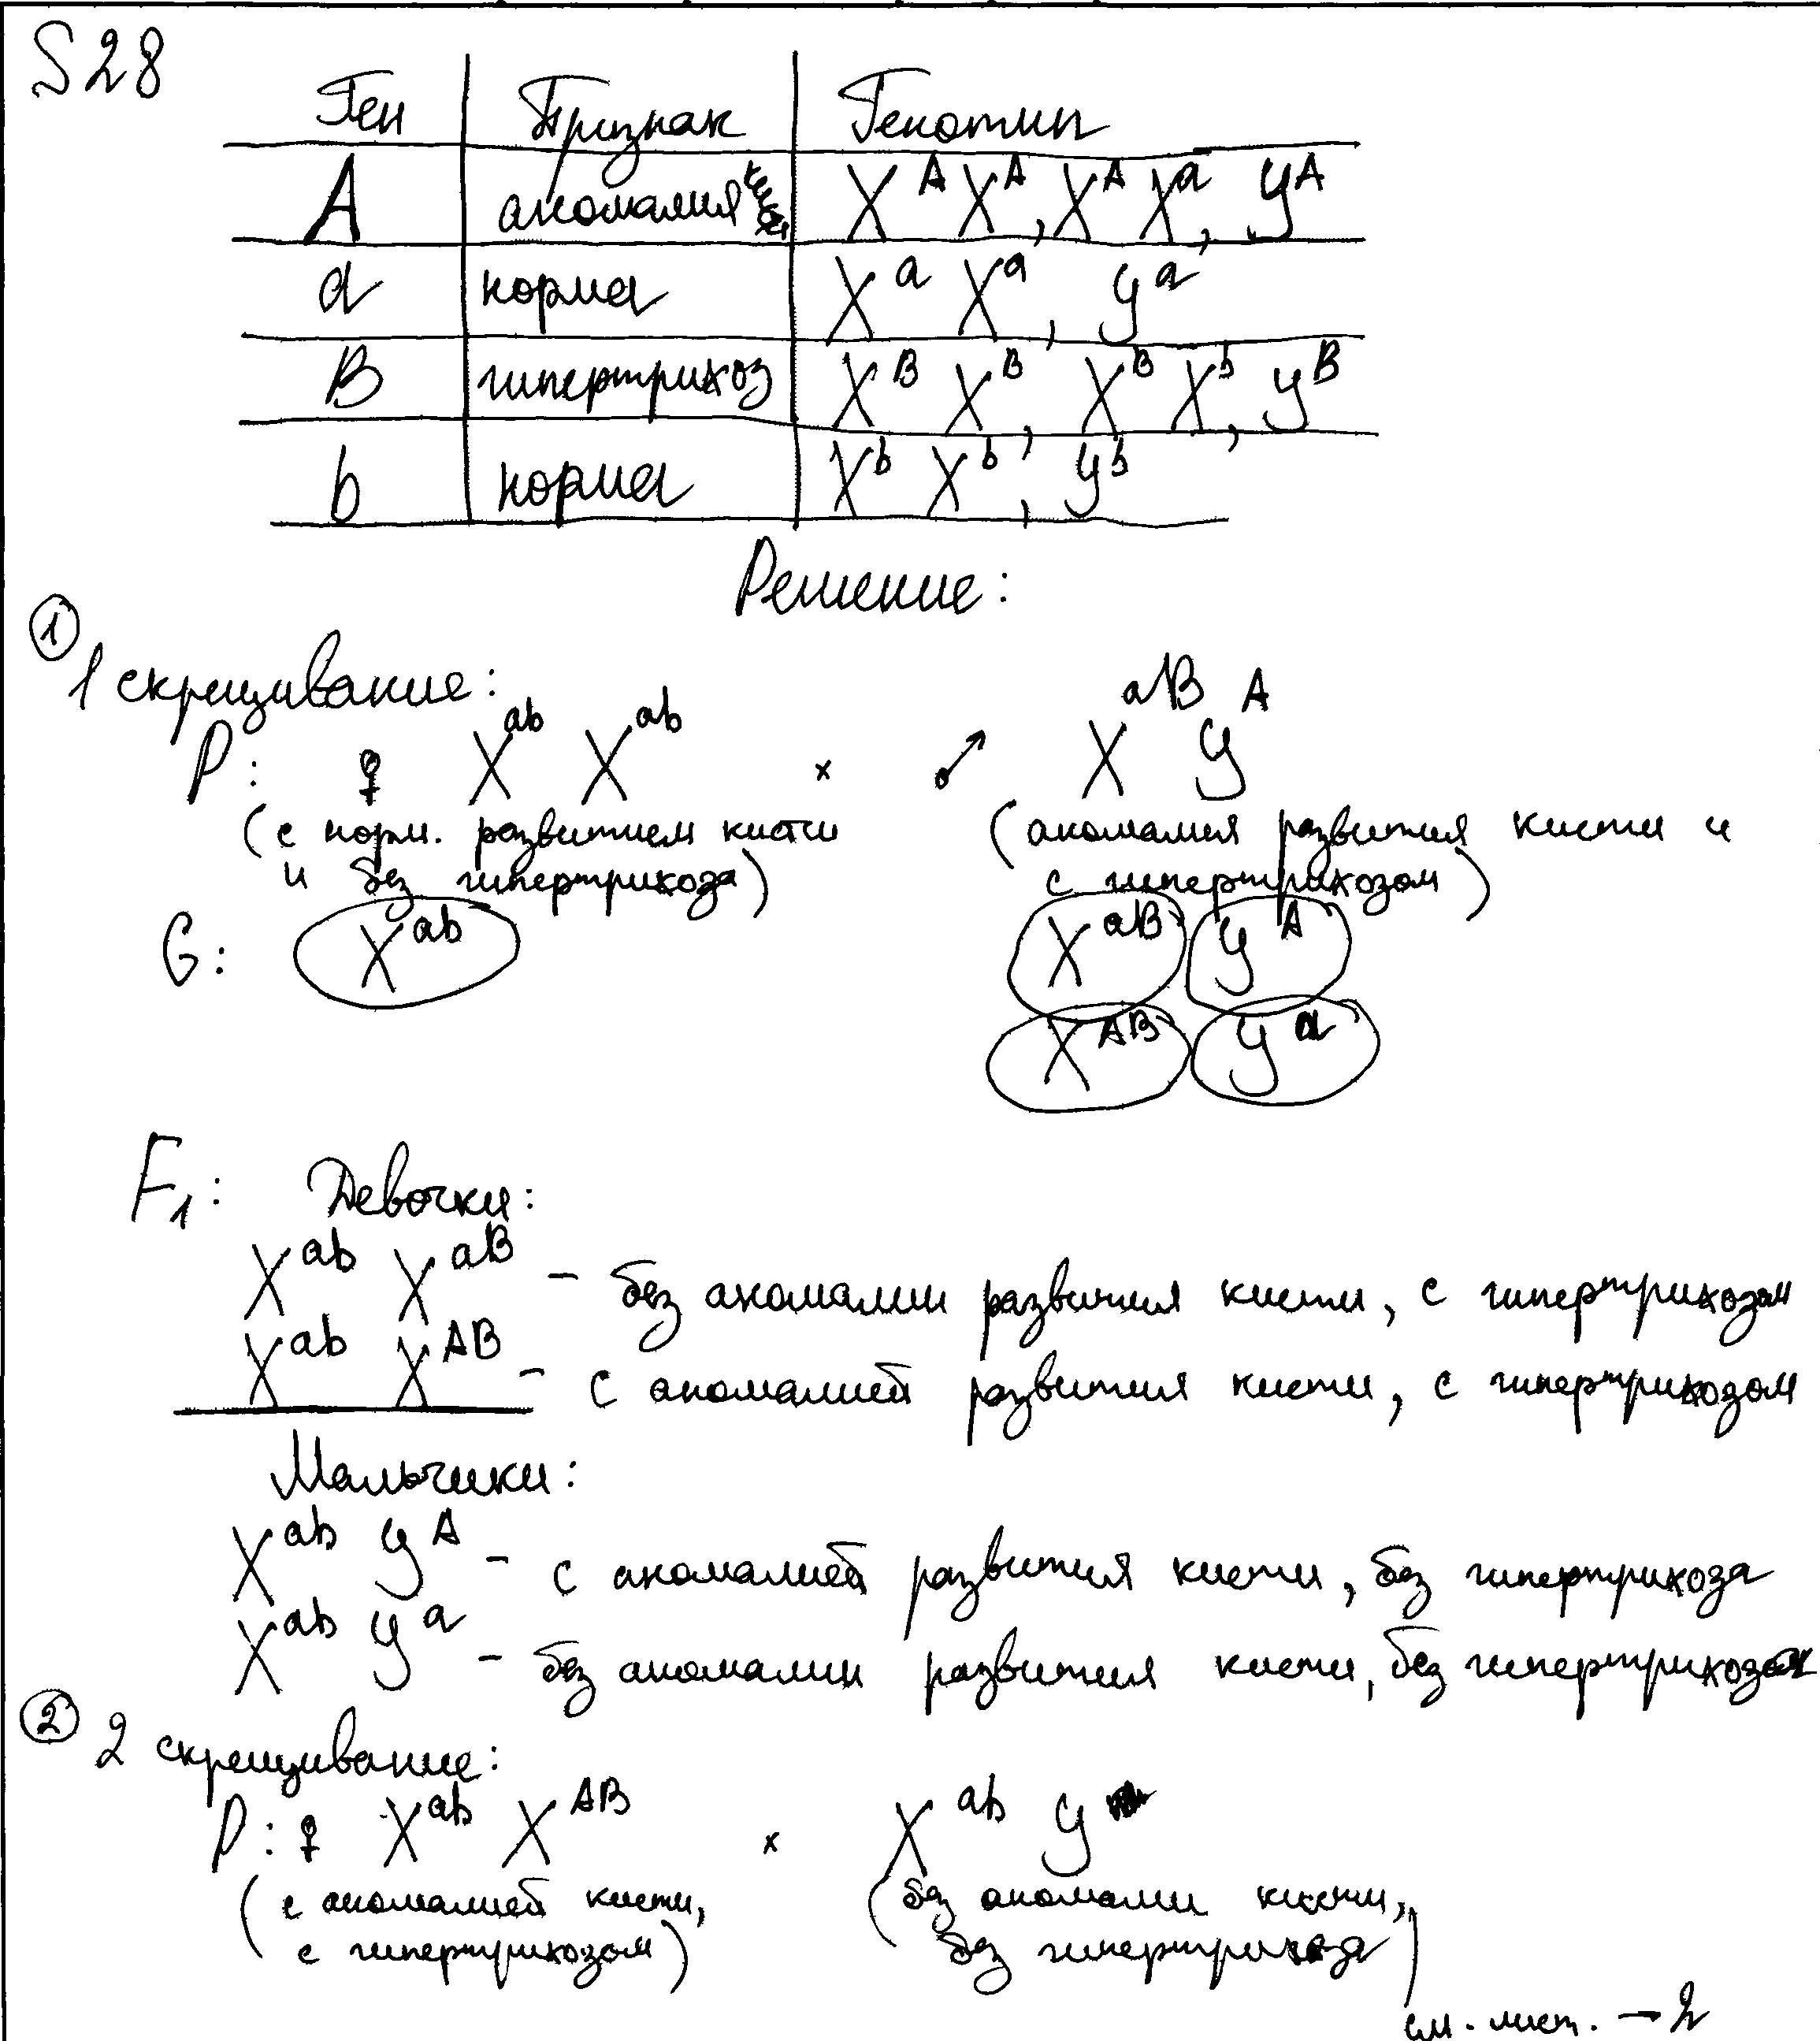 S28
Ген | Признак | Генотип
A | аномалия кисти | X^A X^A, X^A X^a, Y^A
a | норма | X^a X^a, Y^a
B | гипертрихоз | X^B X^B, X^B X^b, Y^B
b | норма | X^b X^b, Y^b
Решение:
① 1 скрещивание:
P: ♀ X^ab X^ab × ♂ X^aB Y^A
(с норм. развитием кисти и без гипертрихоза) (аномалия развития кисти и с гипертрихозом)
G: X^ab X^aB Y^A
X^AB Y^a
F1: Девочки:
X^ab X^aB – без аномалии развития кисти, с гипертрихозом
X^ab X^AB – с аномалией развития кисти, с гипертрихозом
Мальчики:
X^ab Y^A – с аномалией развития кисти, без гипертрихоза
X^ab Y^a – без аномалии развития кисти, без гипертрихоза
② 2 скрещивание:
P: ♀ X^ab X^AB × X^ab Y
(с аномалией кисти, с гипертрихозом) (без аномалии кисти, без гипертрихоза)
см. лист. → 2